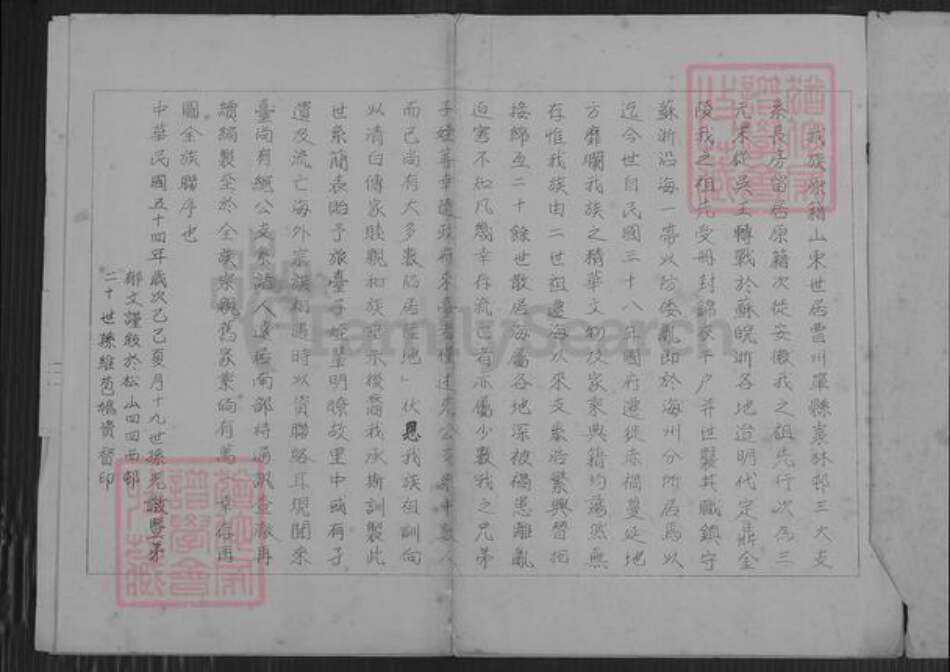 我族原籍山東世居曹州單縣 林邨三大支
系長房留居原籍次徙安徽我之祖先行次為三
元末從吳王轉戰於蘇皖浙各地迨明代定鼎金
陵我之祖先受冊封錦衣千户并世襲其職鎮守
蘇浙沿海一帶以防倭亂即於海州分所居焉以
迄今世自民國三十八年國府遷徙赤禍蔓延地
方靡爛我族之精華文物及家乘典籍均蕩然無
存惟我族由二世祖遷海以來支系浩繁興替相
接綿亘二十餘世散居海屬各地深被禍患離亂
迫害不知凡幾幸存流亡者亦屬少數我之兄弟
子姪輩幸隨政府來臺者僅 公 系中數人
而已尚有大多數陷居陸地」伏恩我族祖訓向
以清白傳家睦親和族昭示後裔我承撕訓製此
世系簡表貽予旅臺子姪輩明瞭故里中頭有子
遺及流亡海外宗族相遇時以資聯絡耳現聞來
臺尚有繩公支系 人遠居南部待通訊查徹再
續編製至於全族宗親舊家業倘有 幸存再
圖全族聯序也
中華民國五十四年歲次乙巳夏月十九世孫克 暨弟
郁文謹敘於松山四四西邨
二十世孫維 督印
FamilySearch